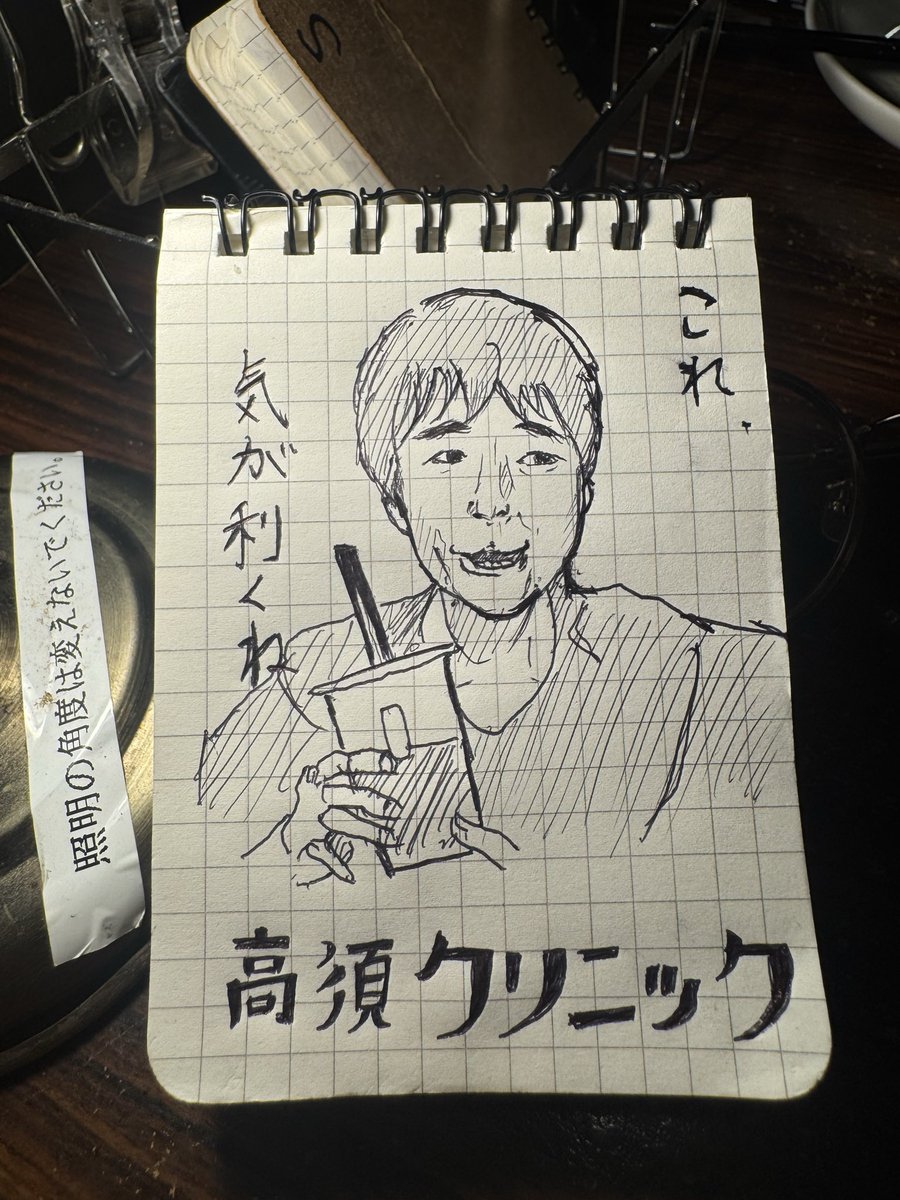 これ、
気が利くね
高須クリニック
照明の角度は変えないでください。
S